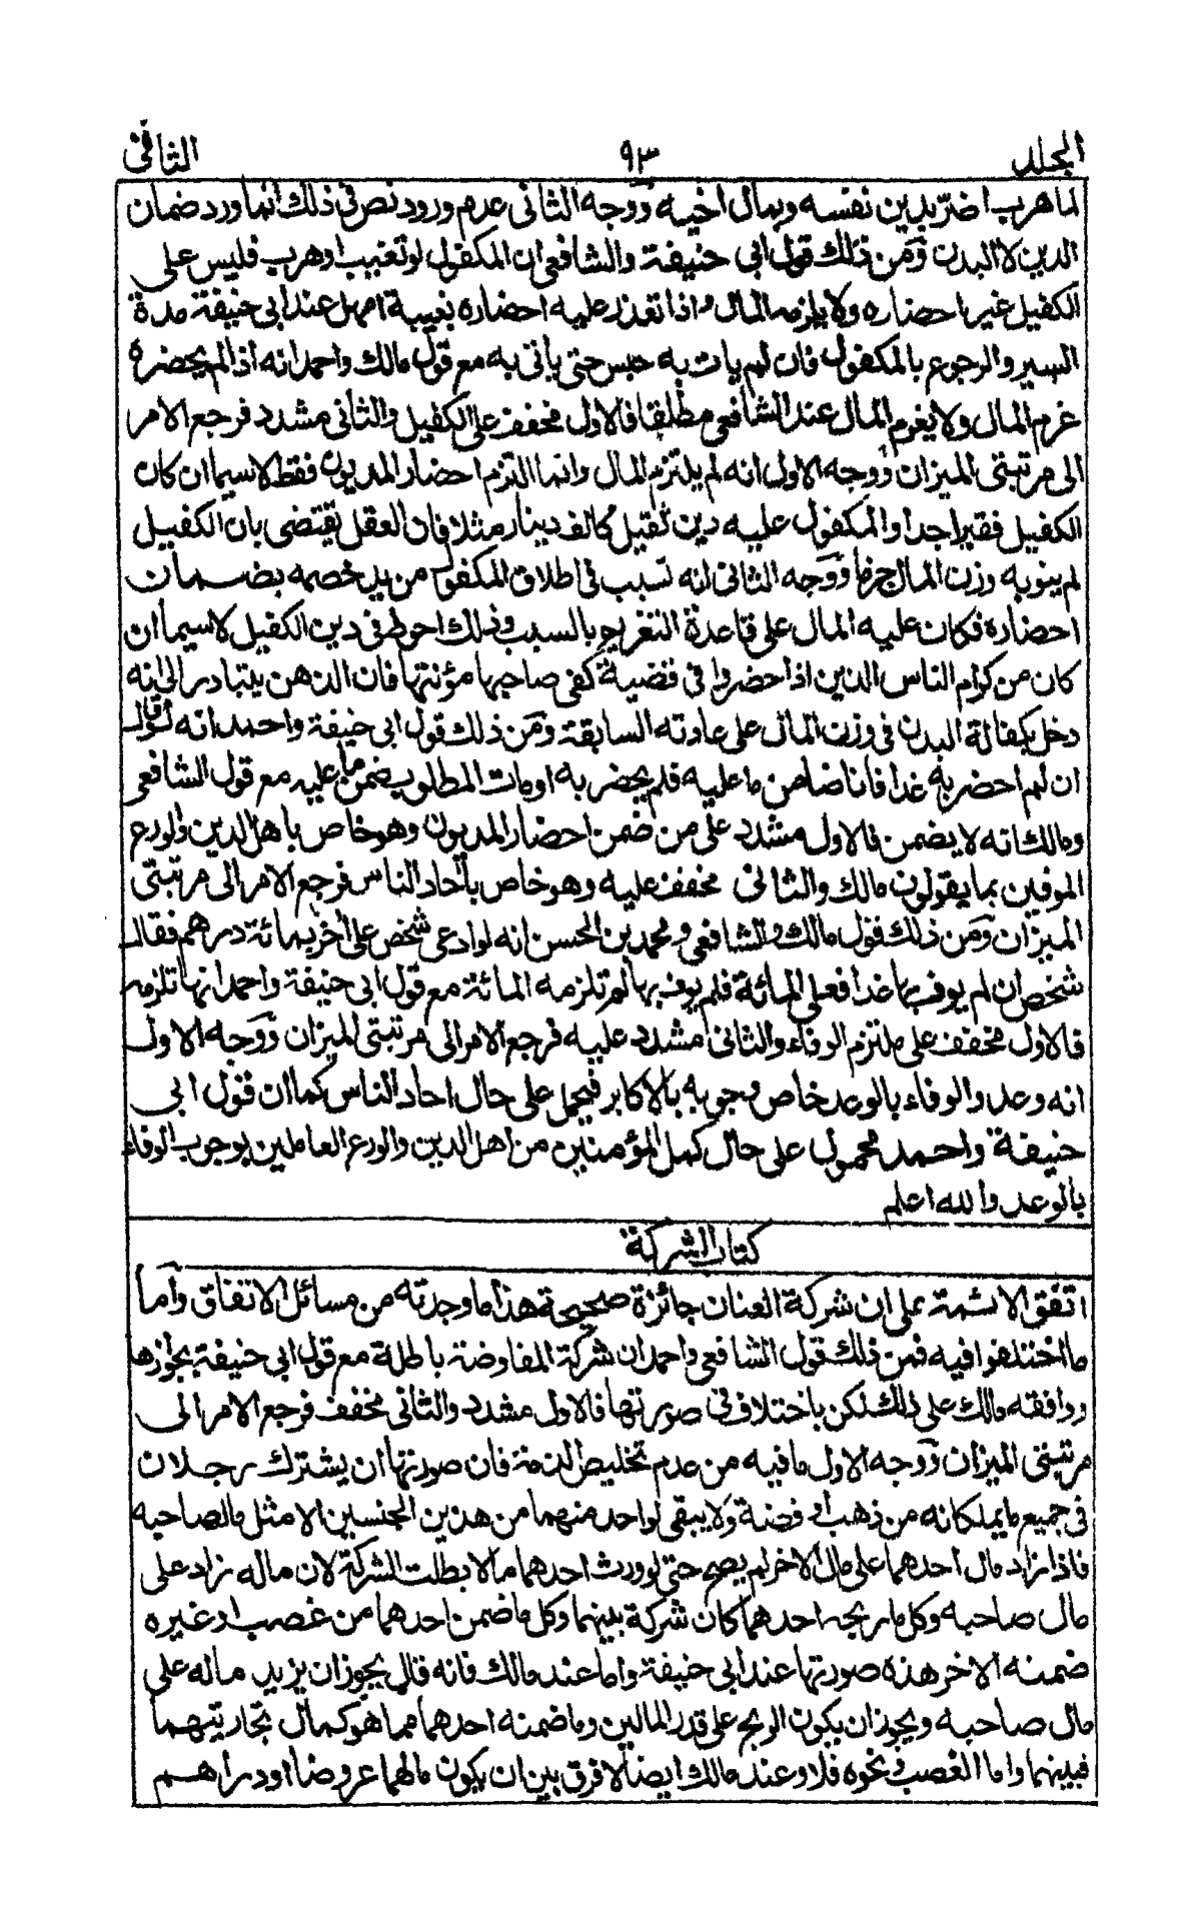 المجلد ٩٣ الثاني
لما هرب اضرّ بدين نفسه وبمال اخيه ووجه الثانى عدم ورود نص فى ذلك انما ورد ضمان
الدين لا البدن ومن ذلك قول ابى حنيفة والشافعى ان المكفول لو تغيب او هرب فليس على
الكفيل غير احضاره ولا يلزمه المال واذا تعذر عليه احضاره بغيبة امهل عند ابى حنيفة مدة
السير والرجوع بالمكفول فان لم يات به حبس حتى ياتى به مع قول مالك واحمد انه اذا لم يحضره
غرم المال ولا يغرم المال عند الشافعى مطلقا فالاول مخفف على الكفيل والثانى مشدد فرجع الامر
الى مرتبتى الميزان ووجه الاول انه لم يلتزم المال وانما التزم احضار المديون فقط لاسيما ان كان
الكفيل فقيرا جدا والمكفول عليه دين ثقيل كالف دينار مثلا فان العقل يقتضى بان الكفيل
لم ينو به وزن المال جزما ووجه الثانى انه تسبب فى اطلاق المكفول من يد خصمه بضمان
احضاره فكان عليه المال على قاعدة التغريم بالسبب وذلك احوط فى دين الكفيل لاسيما ان
كان من كرام الناس الذين اذا حضروا فى قضية كفى صاحبها مؤنتها فان الذهن يتبادر الى انه
دخل بكفالة البدن فى وزن المال على عادته السابقة ومن ذلك قول ابى حنيفة واحمد انه لو قال
ان لم احضر به غدا فانا ضامن ما عليه فلم يحضر به او مات المطلوب يضمن ما عليه مع قول الشافعى
ومالك انه لا يضمن فالاول مشدد على من ضمن احضار المديون وهو خاص باهل الدين والورع
الموفين بما يقولون مالك والثانى مخفف عليه وهو خاص بآحاد الناس فرجع الامر الى مرتبتى
الميزان ومن ذلك قول مالك والشافعى ومحمد بن الحسن انه لو ادعى شخص على آخر بمائة درهم فقال
شخص ان لم يوف بها غدا فعلى المائة فلم يوف بها لم تلزمه المائة مع قول ابى حنيفة واحمد انها تلزمه
فالاول مخفف على ملتزم الوفاء والثانى مشدد عليه فرجع الامر الى مرتبتى الميزان ووجه الاول
انه وعد والوفاء بالوعد خاص وجوبه بالاكابر فيحمل على حال احاد الناس كما ان قول ابى
حنيفة واحمد محمول على حال كمل المؤمنين من اهل الدين والورع العاملين بوجوب الوفاء
بالوعد والله اعلم
كتاب الشركة
اتفق الائمة على ان شركة العنان جائزة صحيحة هذا ما وجدته من مسائل الاتفاق وأما
ما اختلفوا فيه فمن ذلك قول الشافعى واحمد ان شركة المفاوضة باطلة مع قول ابى حنيفة بجوازها
ووافقه مالك على ذلك لكن باختلاف فى صورتها فالاول مشدد والثانى مخفف فرجع الامر الى
مرتبتى الميزان ووجه الاول ما فيه من عدم تخليص الذمة فان صورتها ان يشترك رجلان
فى جميع ما يملكانه من ذهب او فضة ولا يبقى لواحد منهما من هذين الجنسين الا مثل ما لصاحبه
فاذا زاد مال احدهما على مال الاخر لم يصح حتى لو ورث احدهما مالا بطلت الشركة لان ماله زاد على
مال صاحبه وكل ما ربحه احدهما كان شركة بينهما وكل ما ضمن احدهما من غصب او غيره
ضمنه الاخر هذه صورتها عند ابى حنيفة واما عند مالك فانه قال يجوز ان يزيد ماله على
مال صاحبه ويجوز ان يكون الربح على قدر المالين وما ضمنه احدهما مما هو كمال تجارتيهما
فبينهما واما الغصب ونحوه فلا وعند مالك ايضا لا فرق بين ان يكون مالهما عروضا او دراهم